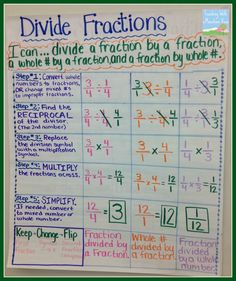 Divide Fractions
I can... divide a fraction by a fraction,
a whole # by a fraction, and a fraction by whole #.
Step #1: Convert whole
numbers to fractions,
OR change mixed #s
to improper fractions.
3/4 ÷ 1/4
3/1 ÷ 1/4
Step #2: Find the
RECIPROCAL
of the divisor.
(The 2nd number)
Step #3: Replace
the division symbol
with a multiplication
symbol.
3/4 × 4/1
3/1 × 4/1
1/4 × 1/3
Step #4: MULTIPLY
the fractions across.
3/4 × 4/1 = 12/4
3/1 × 4/1 = 12/1
1/4 × 1/3 = 1/12
Step #5: SIMPLIFY.
If needed, convert
to mixed number or
whole number.
12/4 = 3
12/1 = 12
1/12
Keep-Change-Flip
Fraction
divided by
a fraction.
Whole #
divided by
a fraction.
Fraction
divided by
a whole
number.